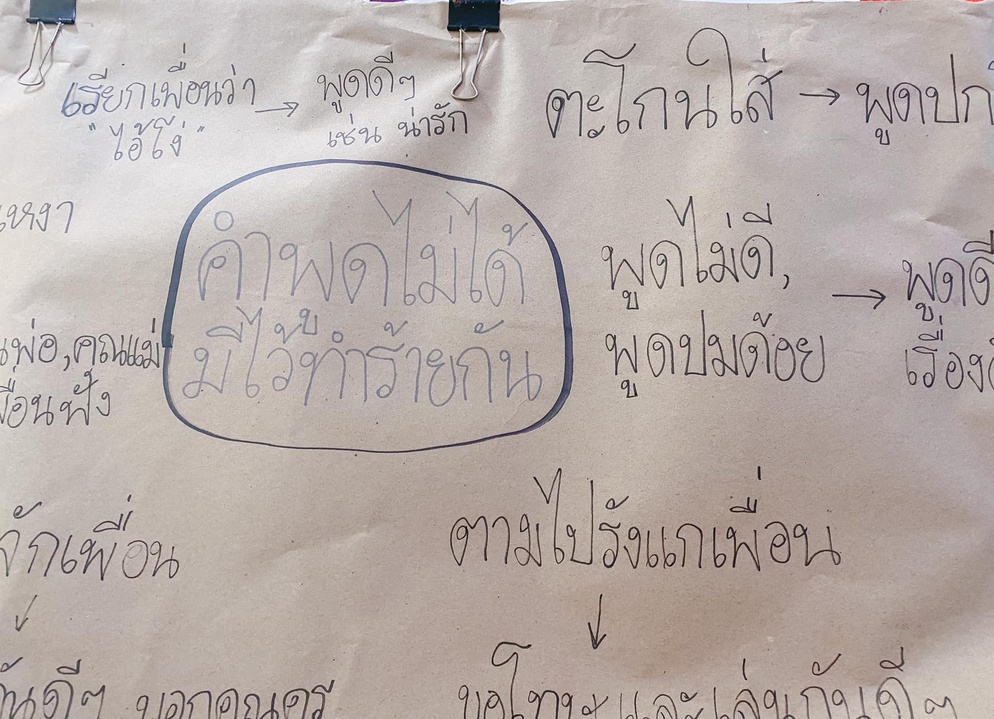 เรียกเพื่อนว่า → พูดดีๆ
"ไอ้โง่" เช่น น่ารัก
ตะโกนใส่ → พูดปก
เหงา
คำพูดไม่ได้
มีไว้ทำร้ายกัน
พูดไม่ดี, → พูดดี
พูดปมด้อย เรื่อง
พ่อ,คุณแม่
เพื่อนฟัง
เพื่อน
↓
กันดีๆ บอกคุณครู
ตามไปรังแกเพื่อน
↓
ขอโทษและเล่นกันดีๆ